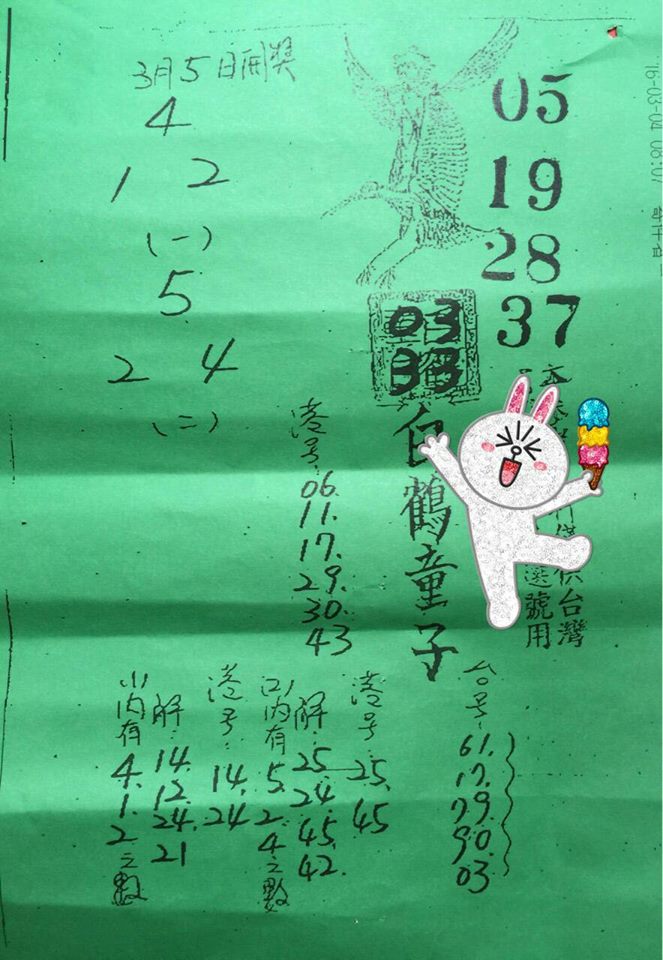 3月5日開獎
4
1 2
(一)
5
2 4
(二)
05
19
28
37
03
33
白鶴童子
供台灣
選號用
港号:
06.
11.
17.
29.
30.
43
台号:
61.
17.
79.
90.
03
港号:
25.
45
解:
25.
24.
45.
42.
内有
5.
2.
4之數
港号:
14.
24
解:
14.
12.
24.
21
内有
4.
1.
2之數
'16-03-04 08:07